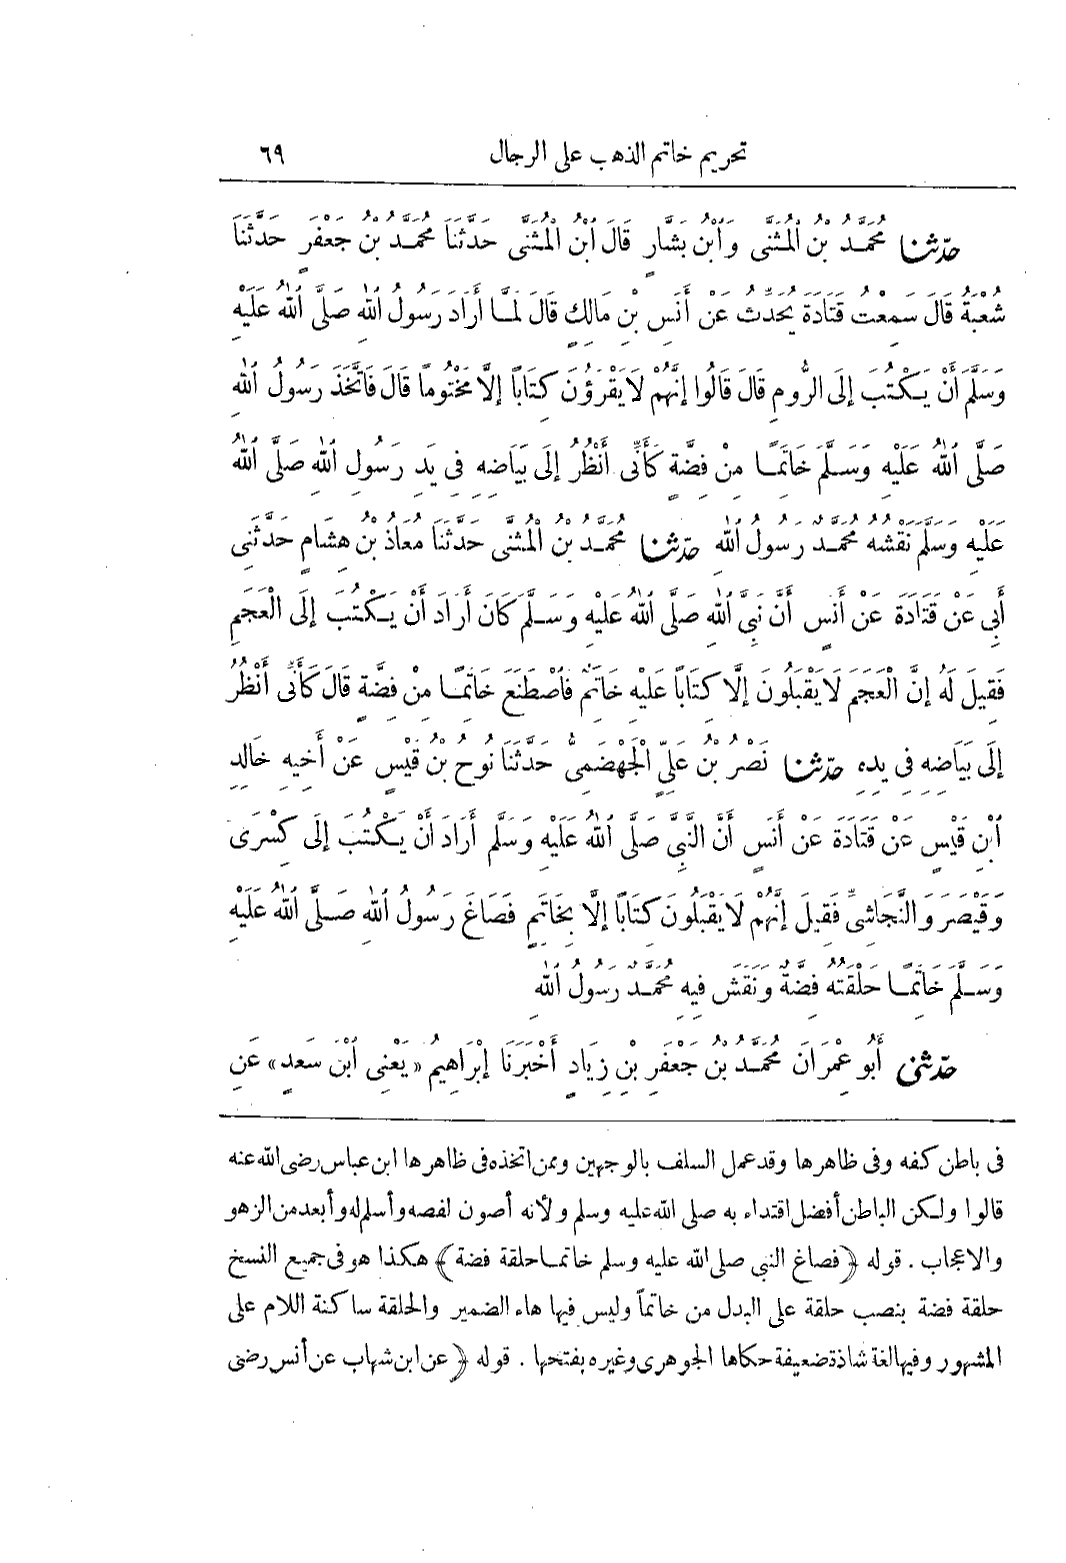 تحريم خاتم الذهب على الرجال ٦٩
حدّثنا مُحَمَّدُ بْنُ الْمُثَنَّى وَابْنُ بَشَّارٍ قَالَ ابْنُ الْمُثَنَّى حَدَّثَنَا مُحَمَّدُ بْنُ جَعْفَرٍ حَدَّثَنَا
شُعْبَةُ قَالَ سَمِعْتُ قَتَادَةَ يُحَدِّثُ عَنْ أَنَسِ بْنِ مَالِكٍ قَالَ لَمَّا أَرَادَ رَسُولُ اللهِ صَلَّى اللهُ عَلَيْهِ
وَسَلَّمَ أَنْ يَكْتُبَ إِلَى الرُّومِ قَالَ قَالُوا إِنَّهُمْ لَا يَقْرَؤُنَ كِتَابًا إِلَّا مَخْتُومًا قَالَ فَاتَّخَذَ رَسُولُ اللهِ
صَلَّى اللهُ عَلَيْهِ وَسَلَّمَ خَاتَمًا مِنْ فِضَّةٍ كَأَنِّى أَنْظُرُ إِلَى بَيَاضِهِ فِى يَدِ رَسُولِ اللهِ صَلَّى اللهُ
عَلَيْهِ وَسَلَّمَ نَقْشُهُ مُحَمَّدٌ رَسُولُ اللهِ حدّثنا مُحَمَّدُ بْنُ الْمُثَنَّى حَدَّثَنَا مُعَاذُ بْنُ هِشَامٍ حَدَّثَنِى
أَبِى عَنْ قَتَادَةَ عَنْ أَنَسٍ أَنَّ نَبِىَّ اللهِ صَلَّى اللهُ عَلَيْهِ وَسَلَّمَ كَانَ أَرَادَ أَنْ يَكْتُبَ إِلَى الْعَجَمِ
فَقِيلَ لَهُ إِنَّ الْعَجَمَ لَا يَقْبَلُونَ إِلَّا كِتَابًا عَلَيْهِ خَاتَمٌ فَاصْطَنَعَ خَاتَمًا مِنْ فِضَّةٍ قَالَ كَأَنِّى أَنْظُرُ
إِلَى بَيَاضِهِ فِى يَدِهِ حدّثنا نَصْرُ بْنُ عَلِىٍّ الْجَهْضَمِىُّ حَدَّثَنَا نُوحُ بْنُ قَيْسٍ عَنْ أَخِيهِ خَالِدِ
ابْنِ قَيْسٍ عَنْ قَتَادَةَ عَنْ أَنَسٍ أَنَّ النَّبِىَّ صَلَّى اللهُ عَلَيْهِ وَسَلَّمَ أَرَادَ أَنْ يَكْتُبَ إِلَى كِسْرَى
وَقَيْصَرَ وَالنَّجَاشِىِّ فَقِيلَ إِنَّهُمْ لَا يَقْبَلُونَ كِتَابًا إِلَّا بِخَاتَمٍ فَصَاغَ رَسُولُ اللهِ صَلَّى اللهُ عَلَيْهِ
وَسَلَّمَ خَاتَمًا حَلْقَتُهُ فِضَّةٌ وَنَقَشَ فِيهِ مُحَمَّدٌ رَسُولُ اللهِ
حدّثنى أَبُو عِمْرَانَ مُحَمَّدُ بْنُ جَعْفَرِ بْنِ زِيَادٍ أَخْبَرَنَا إِبْرَاهِيمُ «يَعْنِى ابْنَ سَعْدٍ» عَنِ
فى باطن كفه وفى ظاهرها وقد عمل السلف بالوجهين وممن اتخذه فى ظاهرها ابن عباس رضى الله عنه
قالوا ولكن الباطن أفضل اقتداء به صلى الله عليه وسلم ولأنه أصون لفصه وأسلم له وأبعد من الزهو
والاعجاب . قوله ﴿فصاغ النبى صلى الله عليه وسلم خاتما حلقة فضة﴾ هكذا هو فى جميع النسخ
حلقة فضة بنصب حلقة على البدل من خاتماً وليس فيها هاء الضمير والحلقة ساكنة اللام على
المشهور وفيها لغة شاذة ضعيفة حكاها الجوهرى وغيره بفتحها . قوله ﴿عن ابن شهاب عن أنس رضى